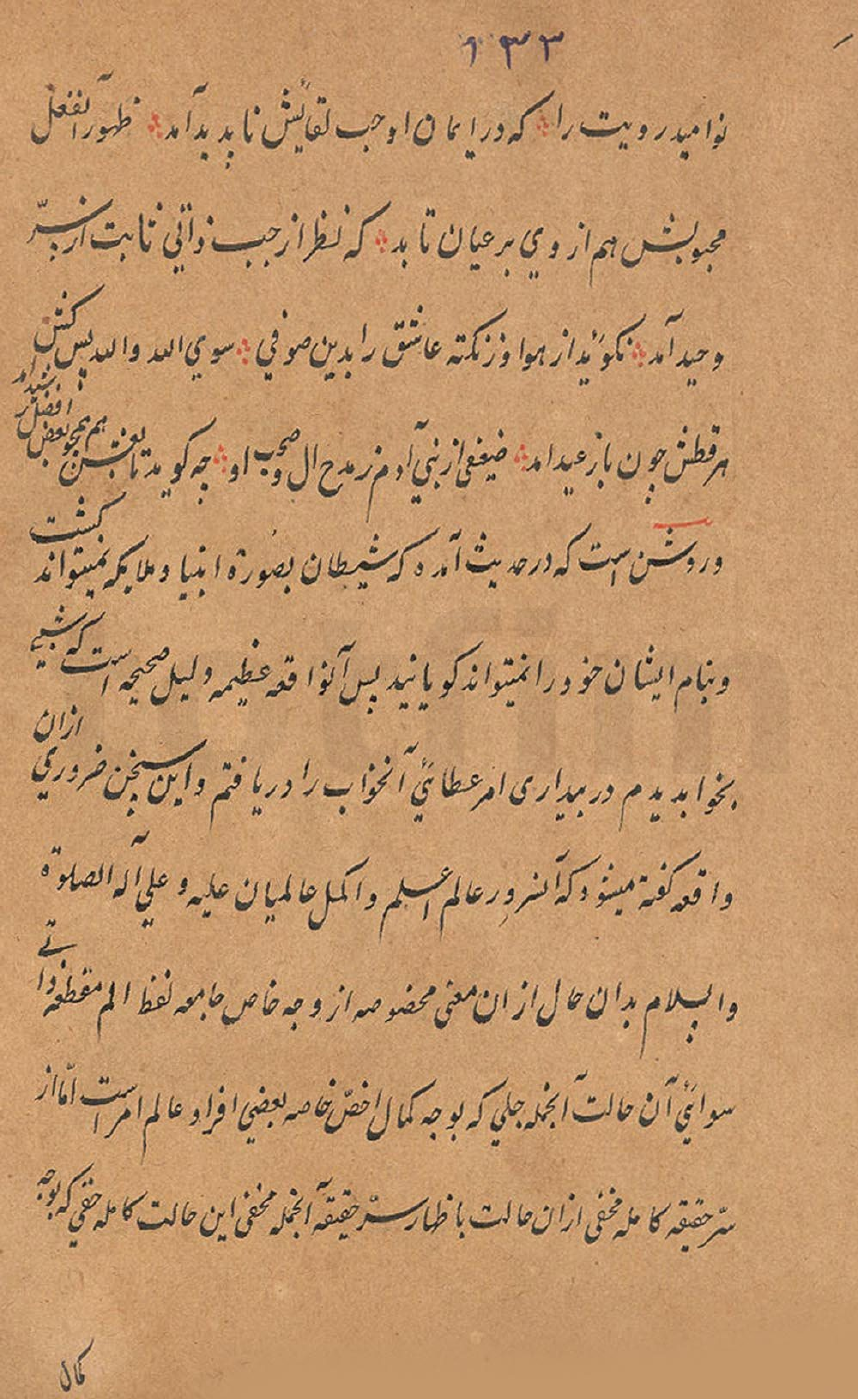 ۱۳۳
نوامید رویت را که در ایمان اوجب لقایش ناپدید آمد ظهور آنفعل
محبوبش هم از وی بر عیان تابد که نظر از حب ذاتی ثابت از سرّ
وحید آمد نکوئید از هوا وز نکته عاشق را بدین صوفی سوی الله والله بس کنش
هر قطش چون باز عید آمد ضعفی از بنی آدم ز مدح ال و صحب او چه کوید تا بعض هم همچو بعض افضل تر پدید آمد
و روشن است که در حدیث آمده که شیطان بصورة انبیا و ملایکه نمیتواند کشت
و بنام ایشان خود را نمیتواند کویانید پس آنواقعه عظیمه دلیل صحیحه است که شبی
بخوابدیدم در بیداری امر عطائی آنخواب را دریافتم و این سخن ضروری ازان
واقعه کفته میشود که آنسرور عالم اعلم و اکمل عالمیان علیه و علی آله الصلوة
والسلام بدان حال ازان معنی مخصوصه از وجه خاص جامعه لفظ الم مقطعه ذاتی
سوائی آن حالت آنجمله جلی که بوجه کمال اخصّ خاصه بعضی افراد عالم امر است امّا از
سرّ حقیقه کامله مخفی ازان حالت باظهار سرّ حقیقه آنجمله مخفی این حالت کامله خفی که بوجه
کمال